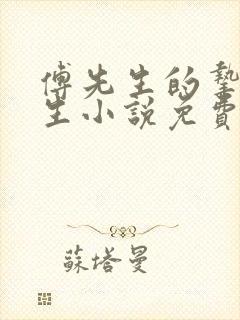 傅先生的摯
生小說免費
蘇塔曼